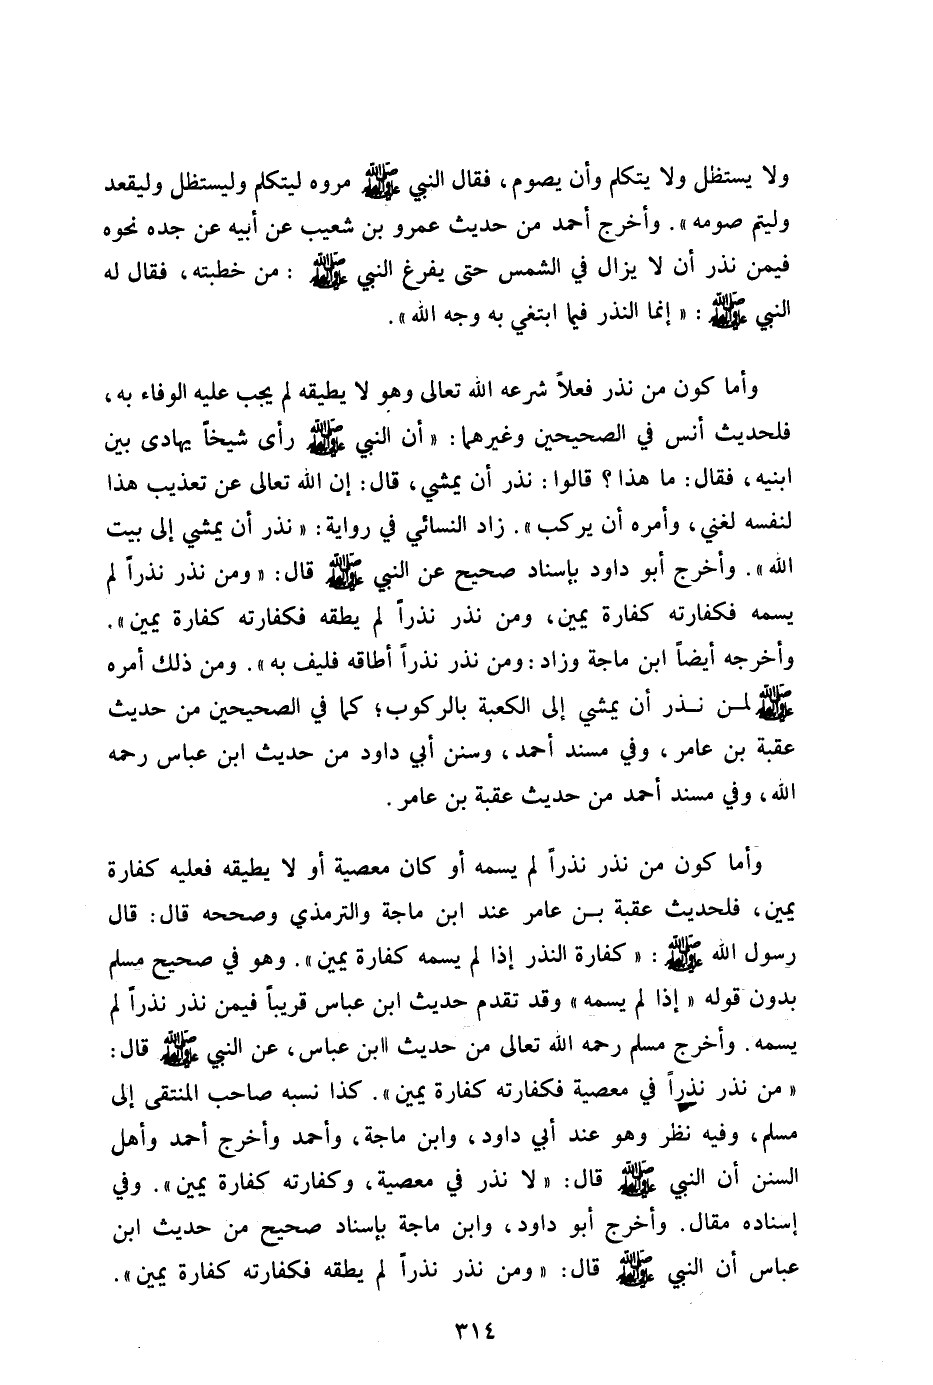 ولا يستظل ولا يتكلم وأن يصوم، فقال النبي ﷺ مروه ليتكلم وليستظل وليقعد
وليتم صومه». وأخرج أحمد من حديث عمرو بن شعيب عن أبيه عن جده نحوه
فيمن نذر أن لا يزال في الشمس حتى يفرغ النبي ﷺ : من خطبته، فقال له
النبي ﷺ : « إنما النذر فيما ابتغي به وجه الله».
وأما كون من نذر فعلاً شرعه الله تعالى وهو لا يطيقه لم يجب عليه الوفاء به،
فلحديث أنس في الصحيحين وغيرهما: « أن النبي ﷺ رأى شيخاً يهادى بين
ابنيه، فقال: ما هذا؟ قالوا: نذر أن يمشي، قال: إن الله تعالى عن تعذيب هذا
لنفسه لغني، وأمره أن يركب». زاد النسائي في رواية: « نذر أن يمشي إلى بيت
الله». وأخرج أبو داود بإسناد صحيح عن النبي ﷺ قال: « ومن نذر نذراً لم
يسمه فكفارته كفارة يمين، ومن نذر نذراً لم يطقه فكفارته كفارة يمين».
وأخرجه أيضاً ابن ماجة وزاد: ومن نذر نذراً أطاقه فليف به». ومن ذلك أمره
ﷺ لمن نذر أن يمشي إلى الكعبة بالركوب؛ كما في الصحيحين من حديث
عقبة بن عامر، وفي مسند أحمد، وسنن أبي داود من حديث ابن عباس رحمه
الله، وفي مسند أحمد من حديث عقبة بن عامر.
وأما كون من نذر نذراً لم يسمه أو كان معصية أو لا يطيقه فعليه كفارة
يمين، فلحديث عقبة بن عامر عند ابن ماجة والترمذي وصححه قال: قال
رسول الله ﷺ : « كفارة النذر إذا لم يسمه كفارة يمين». وهو في صحيح مسلم
بدون قوله « إذا لم يسمه» وقد تقدم حديث ابن عباس قريباً فيمن نذر نذراً لم
يسمه. وأخرج مسلم رحمه الله تعالى من حديث اابن عباس، عن النبي ﷺ قال:
« من نذر نذراً في معصية فكفارته كفارة يمين». كذا نسبه صاحب المنتقى إلى
مسلم، وفيه نظر وهو عند أبي داود، وابن ماجة، وأحمد وأخرج أحمد وأهل
السنن أن النبي ﷺ قال: « لا نذر في معصية، وكفارته كفارة يمين». وفي
إسناده مقال. وأخرج أبو داود، وابن ماجة بإسناد صحيح من حديث ابن
عباس أن النبي ﷺ قال: « ومن نذر نذراً لم يطقه فكفارته كفارة يمين».
٣١٤